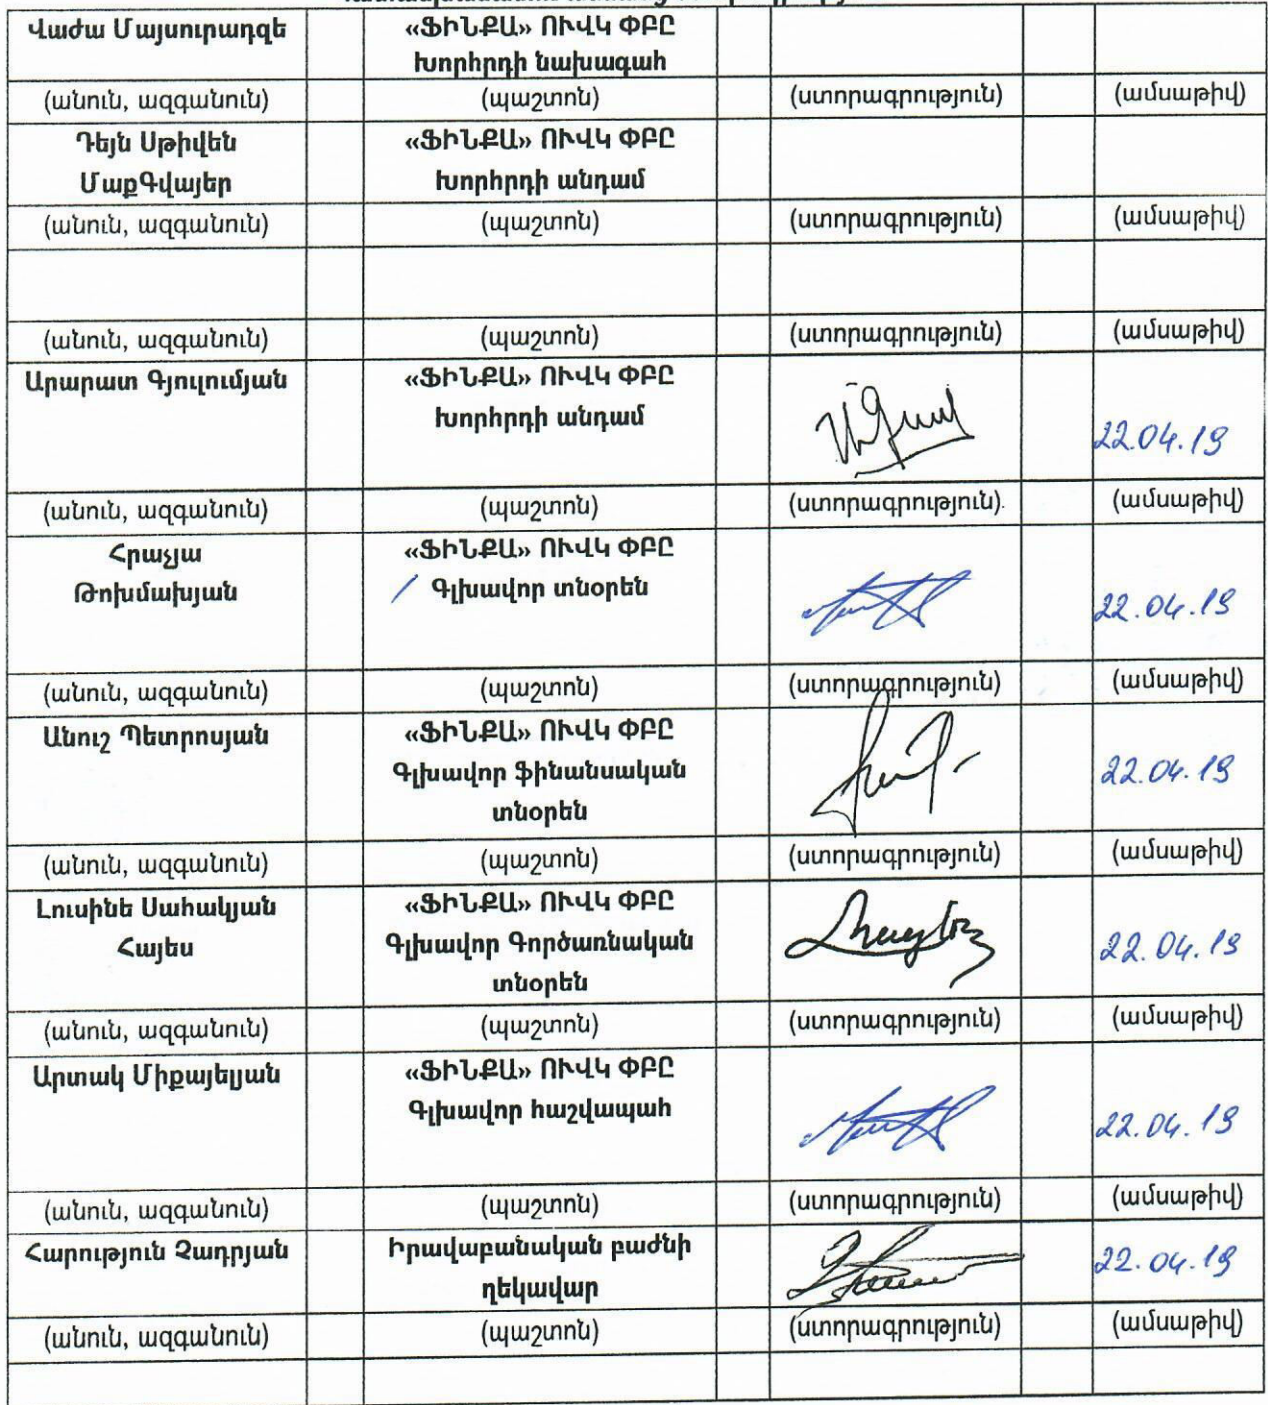 Վաժա Մայսուրադզե «ՖԻՆՔԱ» ՈՒՎԿ ՓԲԸ
Խորհրդի նախագահ
(անուն, ազգանուն) (պաշտոն) (ստորագրություն) (ամսաթիվ)
Դեյն Սթիվեն «ՖԻՆՔԱ» ՈՒՎԿ ՓԲԸ
ՄաքԳվայեր Խորհրդի անդամ
(անուն, ազգանուն) (պաշտոն) (ստորագրություն) (ամսաթիվ)
(անուն, ազգանուն) (պաշտոն) (ստորագրություն) (ամսաթիվ)
Արարատ Գյուլումյան «ՖԻՆՔԱ» ՈՒՎԿ ՓԲԸ
Խորհրդի անդամ 22.04.19
(անուն, ազգանուն) (պաշտոն) (ստորագրություն) (ամսաթիվ)
Հրաչյա «ՖԻՆՔԱ» ՈՒՎԿ ՓԲԸ
Թոխմախյան / Գլխավոր տնօրեն 22.04.19
(անուն, ազգանուն) (պաշտոն) (ստորագրություն) (ամսաթիվ)
Անուշ Պետրոսյան «ՖԻՆՔԱ» ՈՒՎԿ ՓԲԸ
Գլխավոր ֆինանսական 22.04.19
տնօրեն
(անուն, ազգանուն) (պաշտոն) (ստորագրություն) (ամսաթիվ)
Լուսինե Սահակյան «ՖԻՆՔԱ» ՈՒՎԿ ՓԲԸ
Հայես Գլխավոր Գործառնական 22.04.19
տնօրեն
(անուն, ազգանուն) (պաշտոն) (ստորագրություն) (ամսաթիվ)
Արտակ Միքայելյան «ՖԻՆՔԱ» ՈՒՎԿ ՓԲԸ
Գլխավոր հաշվապահ 22.04.19
(անուն, ազգանուն) (պաշտոն) (ստորագրություն) (ամսաթիվ)
Հարություն Չադրյան Իրավաբանական բաժնի 22.04.19
ղեկավար
(անուն, ազգանուն) (պաշտոն) (ստորագրություն) (ամսաթիվ)